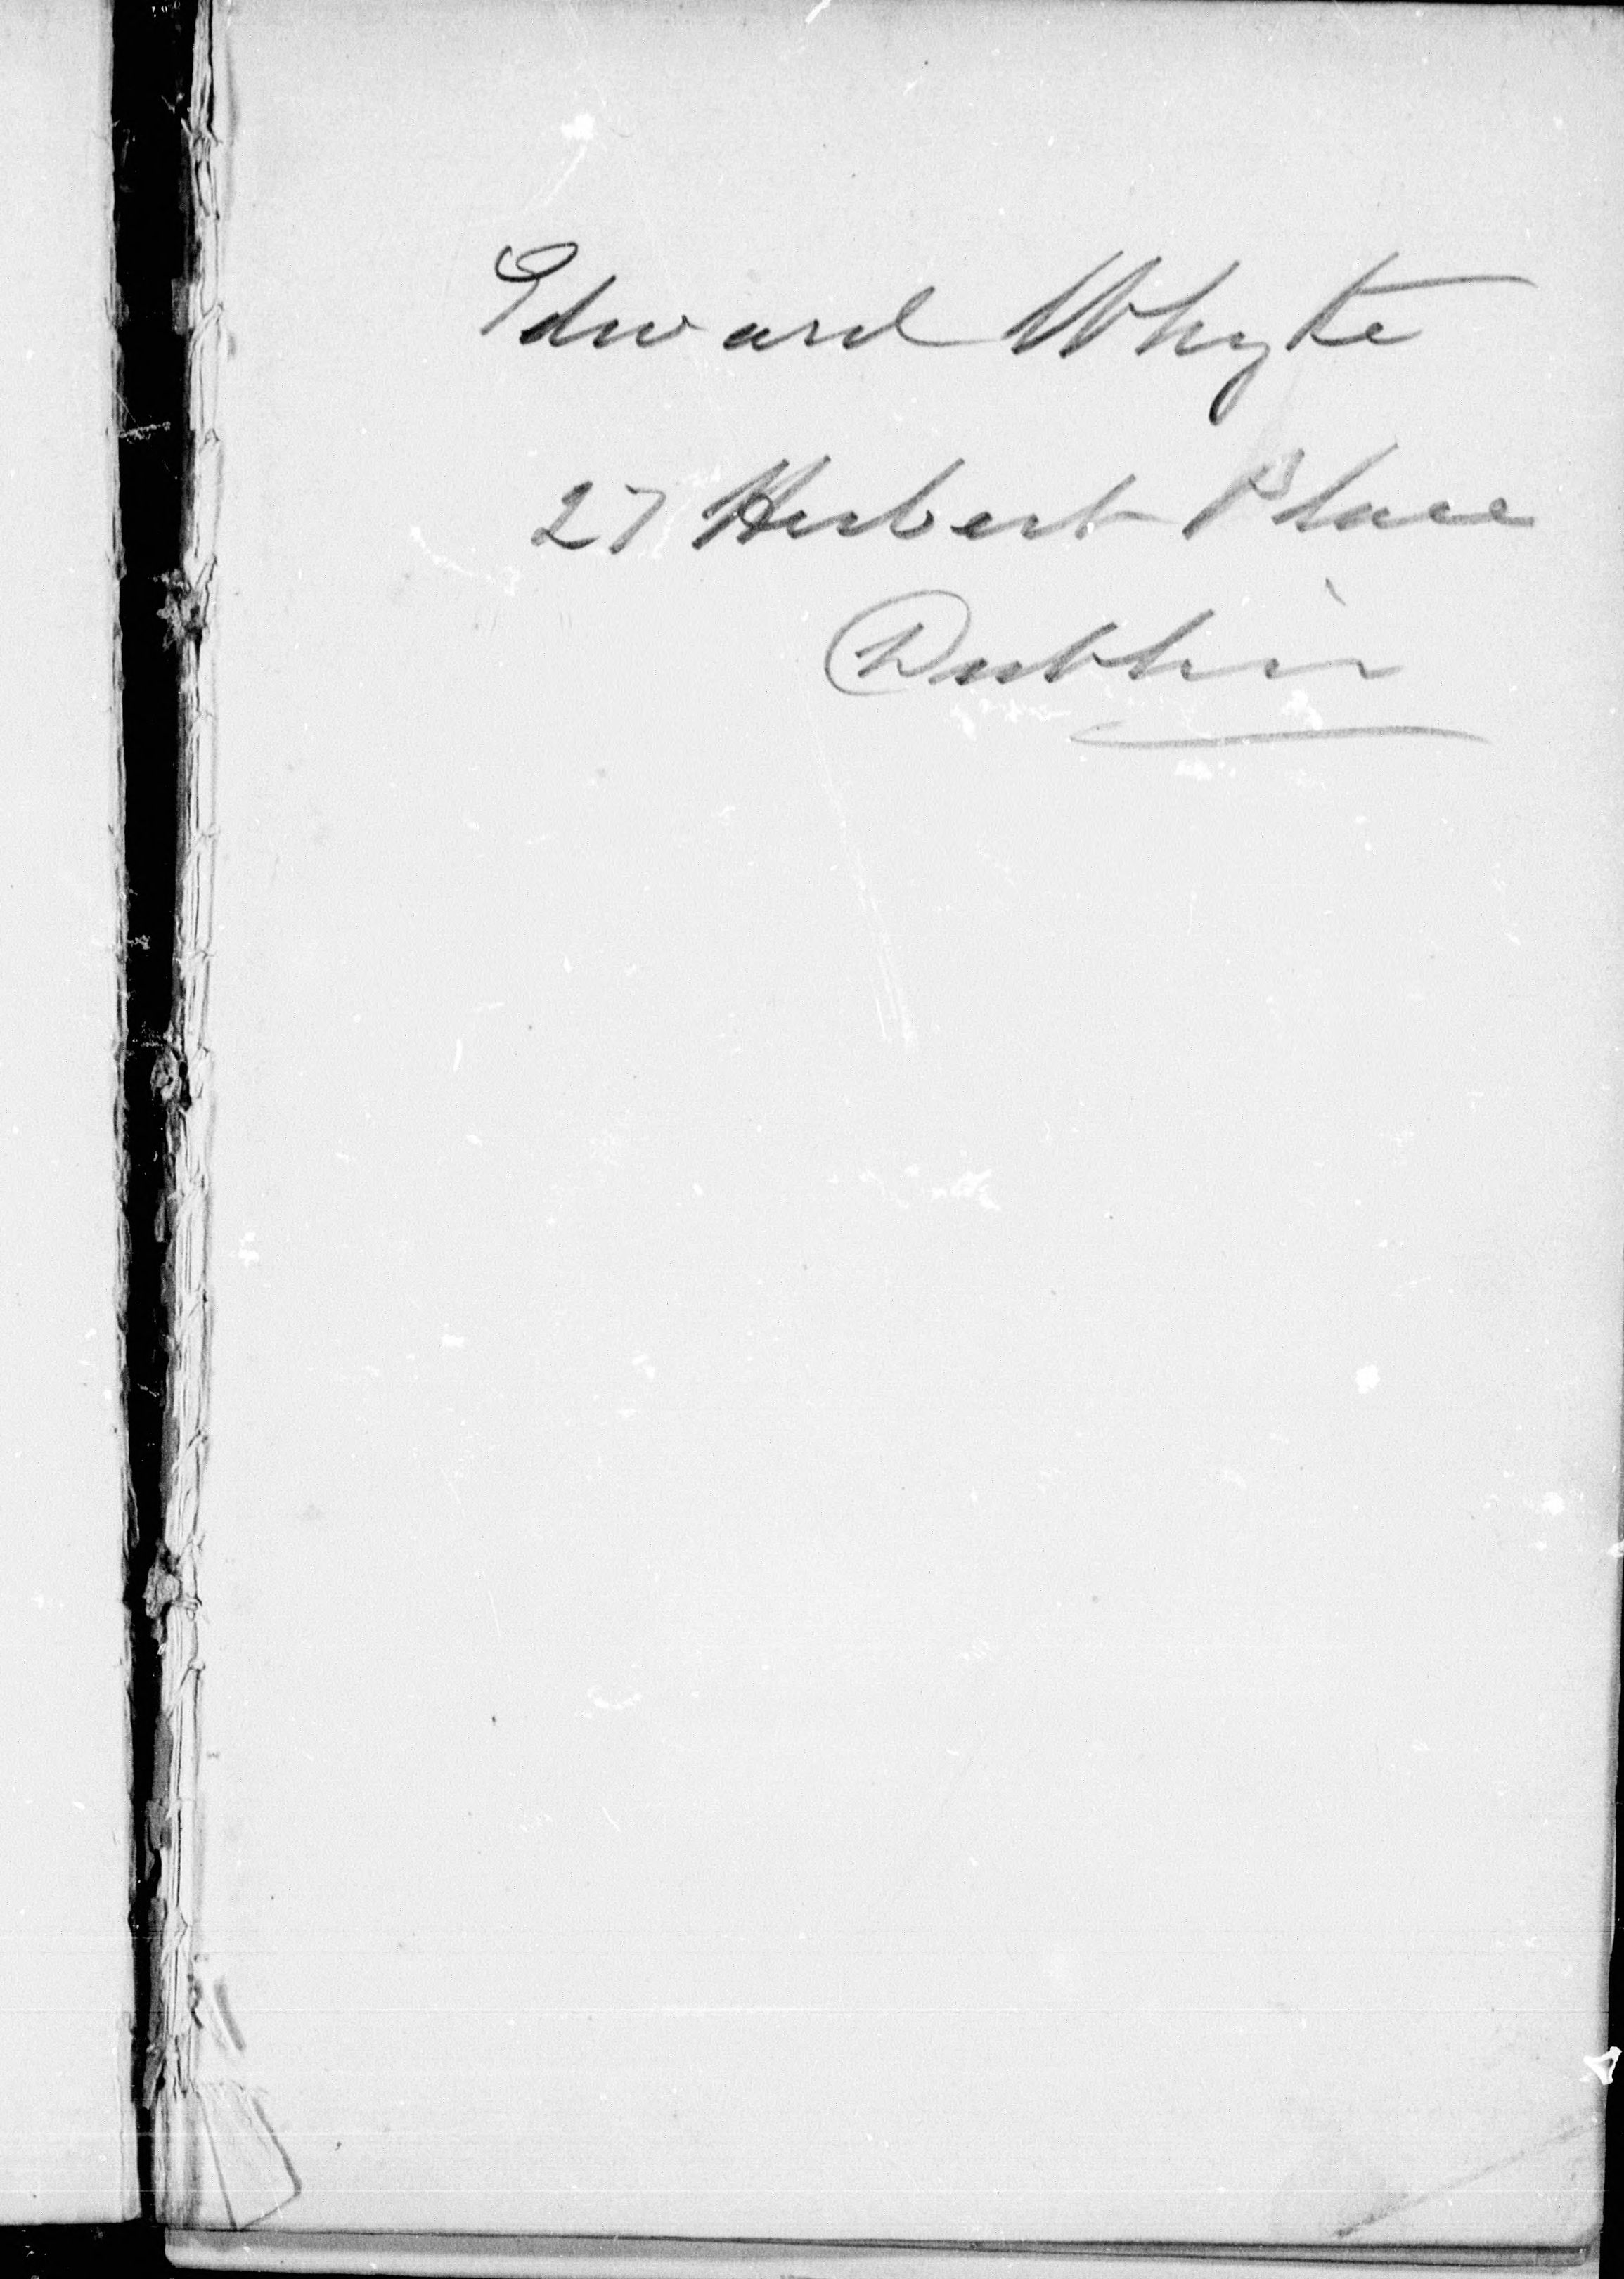 Edward Whyte
27 Herbert Place
Dublin